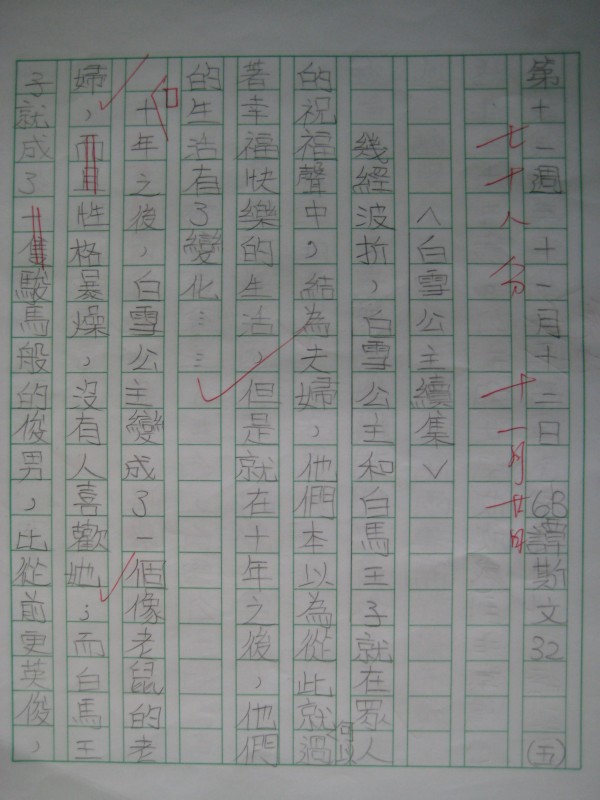 第十一週 十一月十二日 68譚斯文32 (五)
七十八分 十一月廿日
〈白雪公主續集〉
幾經波折，白雪公主和白馬王子就在眾人
的祝福聲中，結為夫婦，他們本以為從此就過
著幸福快樂的生活，但是就在十年之後，他們
的生活有了變化……
十年之後，白雪公主變成了一個像老鼠的老
婦，而且性格暴燥，沒有人喜歡她；而白馬王
子就成了一隻駿馬般的俊男，比從前更英俊，